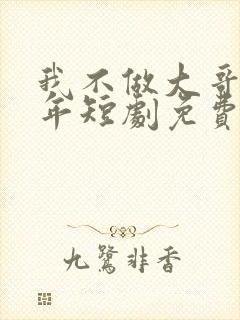 我不做大哥
年短劇免費
九鷺非香